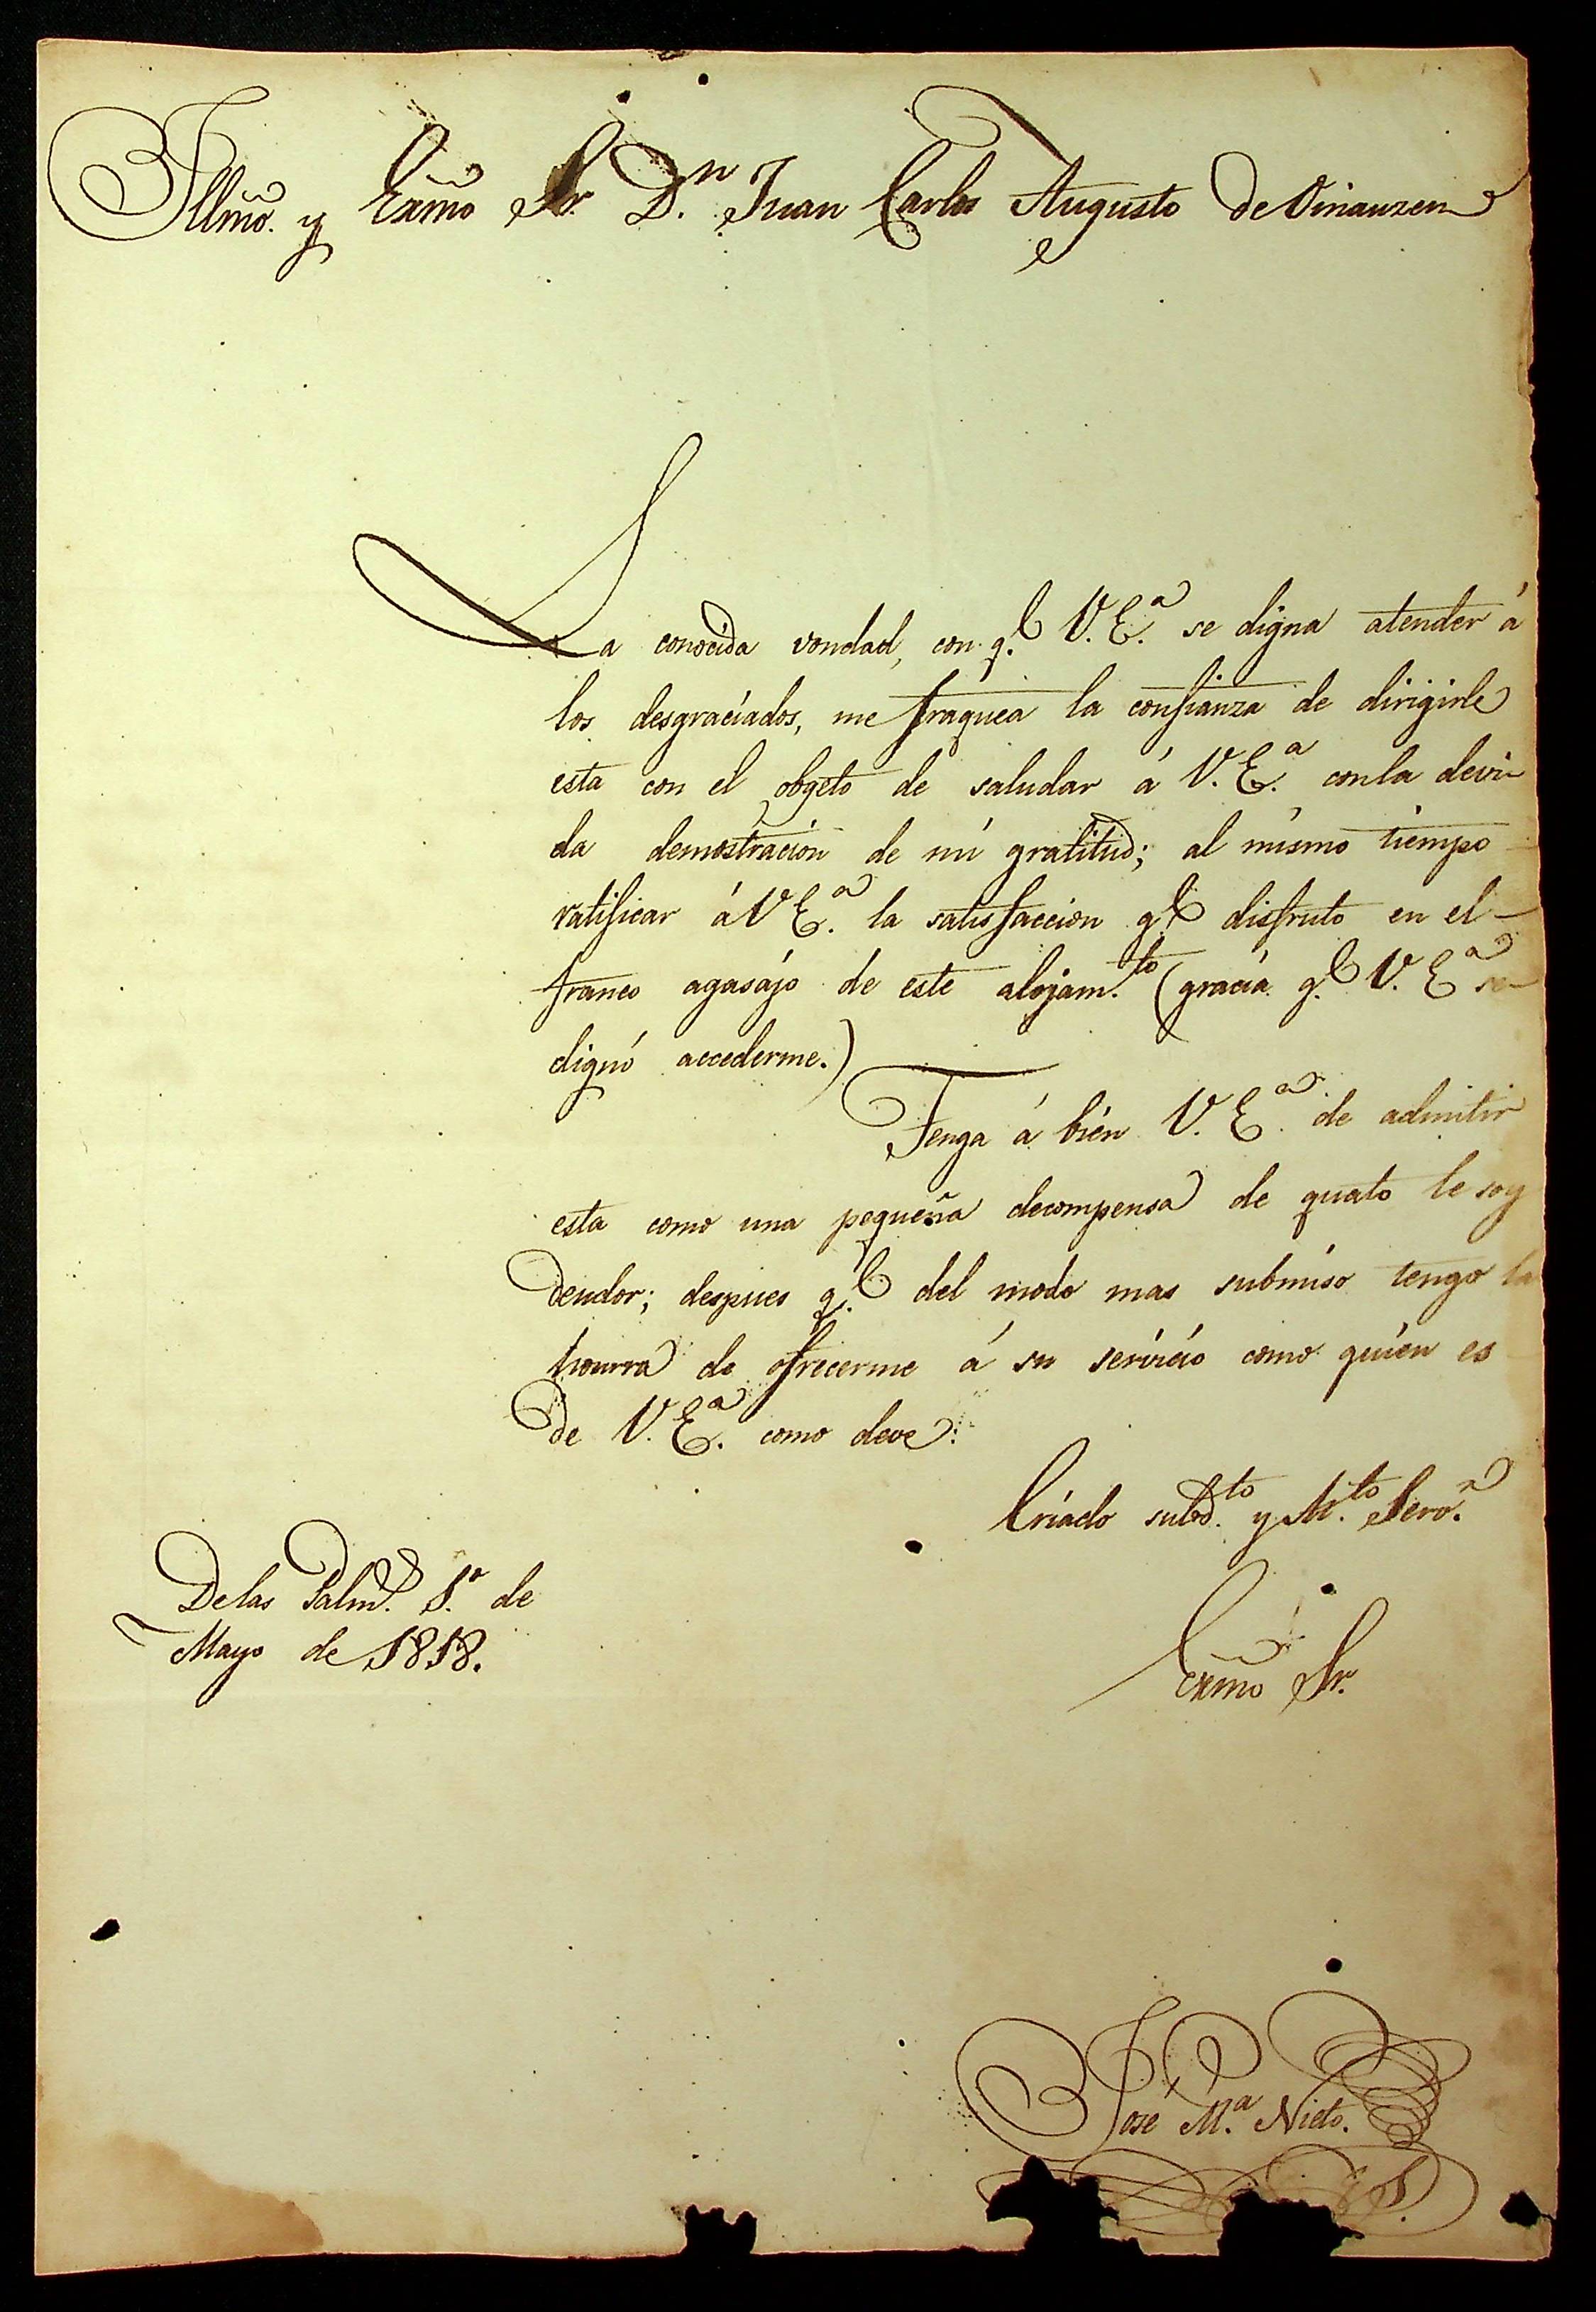 Illmõ. y Exmõ Sr. D.n Juan Carlos Augusto de Oinauzen
La conocida vondad, con q.e V. E.a se digna atender á
los desgraciados, me fraquea la confianza de dirigirle
esta con el obgeto de saludar á V. E.a conla devi-
da demostración de mi gratitud; al mismo tiempo
ratificar á V E.a la satisfaccion q.e disfruto en el
franco agasájo de este alojam.to (gracia q.e V. E.a se
dignó accederme.)
Tenga á bien V. E.a de admitir
esta como una pequeña decompensa de quato le soy
deudor; despues q.e del modo mas submiso tengo la
hourra de ofrecerme á su servicio como quien es
de V. E.a como deve:
Criado subd.to y At.to Servr.
Exmõ Sr.
De las Palm.s 1.o de
Mayo de 1818.
José M.a Nieto.